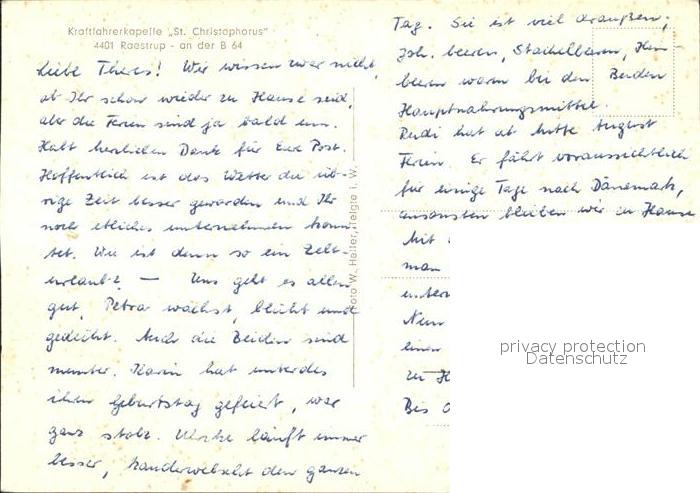 Kraftfahrerkapelle „St. Christophorus"
4401 Raestrup - an der B 64
Liebe Theres! Wir wissen zwar nicht,
ob Ihr schon wieder zu Hause seid,
aber die Ferien sind ja bald um.
Habt herzlichen Dank für Eure Post.
Hoffentlich ist das Wetter die üb-
rige Zeit besser geworden und Ihr
noch etliches unternehmen konn-
tet. Wie ist denn so ein Zelt-
urlaub? — Uns geht es allen
gut, Petra wächst, blüht und
gedeiht. Auch die Beiden sind
munter. Karin hat unterdes
ihren Geburtstag gefeiert, war
ganz stolz. Ulrike läuft immer
besser, kauderwelscht den ganzen
Foto W. Haller, Telgte i. W.
Tag. Sie ist viel draußen;
Joh. beeren, Stachelbeeren, Him-
beeren waren bei den Beiden
Hauptnahrungsmittel.
Rudi hat ab Mitte August
Ferien. Er fährt voraussichtlich
für einige Tage nach Dänemark,
ansonsten bleiben wir zu Hause
Mit
man
untern
Nun
einen
zu H
Bis
privacy protection
Datenschutz